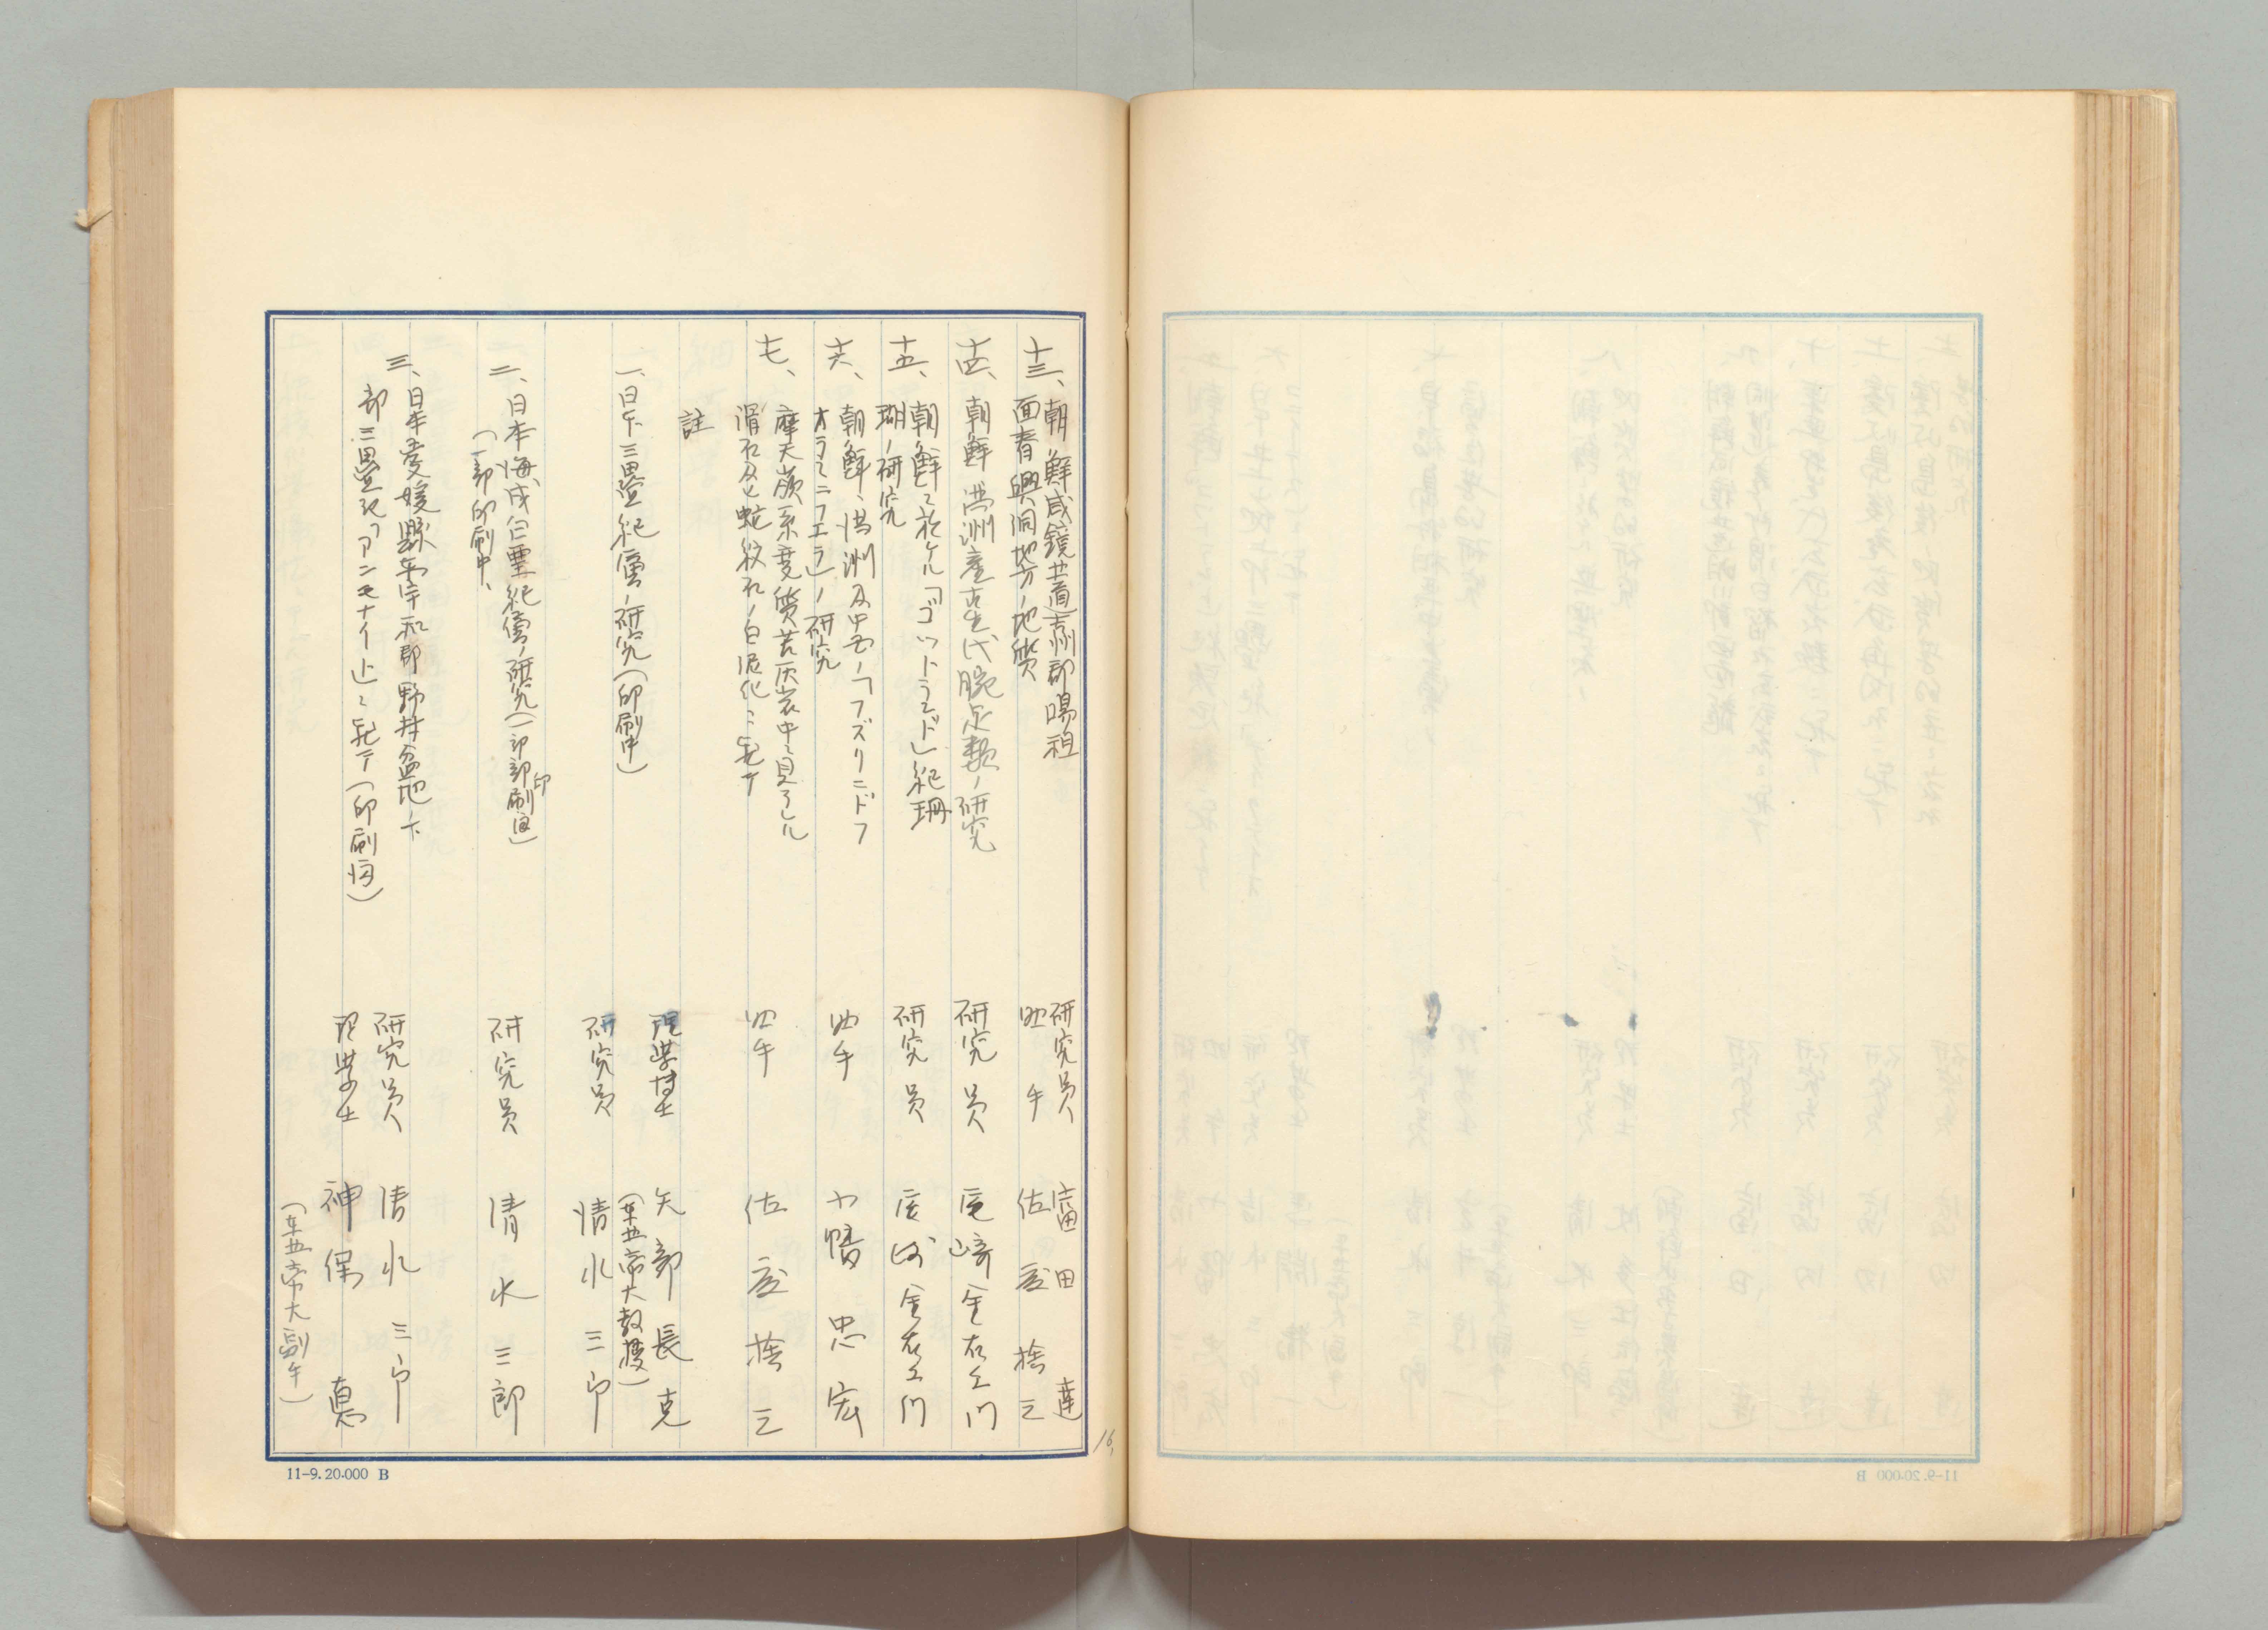 十三、朝鮮咸鏡北道吉州郡暘社
面春興洞地方ノ地質
研究員 富田達
助手 佐藤捨三
十四、朝鮮、満洲産古生代腕足類ノ研究
研究員 尾崎金右衛門
十五、朝鮮ニ於ケル「ゴットランド」紀珊
瑚ノ研究
研究員 尾崎金右衛門
十六、朝鮮、満洲及中西ノ「フズリニドフ
オラミニフエラ」ノ研究
助手 小幡忠宏
十七、摩天嶺系変質苦灰岩中ニ見ラルル
滑石及ヒ蛇紋石ノ白泥化ニ就テ
助手 佐藤捨三
註
一、日本三畳紀層ノ研究(印刷中)
理学博士 矢部長克
(東北帝大教授)
研究員 清水三郎
二、日本海成白堊紀層ノ研究(一部印刷
(一部印刷中、
研究員 清水三郎
三、日本愛媛縣東宇和郡野村盆地ノ下
部三畳紀「アンモナイト」ニ就テ(印刷
研究員 清水三郎
理学士 神保悳
(東北帝大副手)
16,
11-9.20.000 B